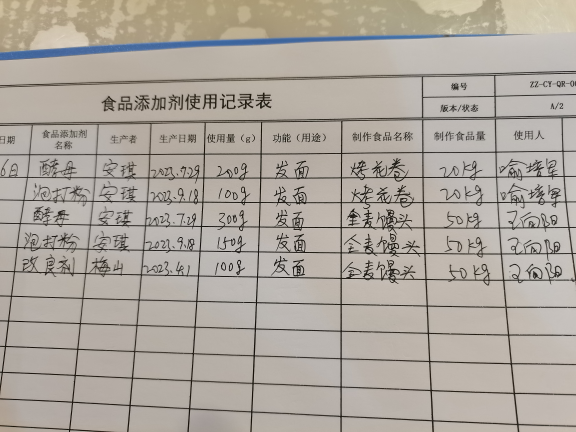 编号 ZZ-CY-QR-0
食品添加剂使用记录表
版本/状态 A/2
日期 食品添加剂名称 生产者 生产日期 使用量（g） 功能（用途） 制作食品名称 制作食品量 使用人
6日 酵母 安琪 2023.7.29 200g 发面 烤花卷 20kg 喻培军
泡打粉 安琪 2023.9.18 100g 发面 烤花卷 20kg 喻培军
酵母 安琪 2023.7.29 300g 发面 全麦馒头 50kg 王向阳
泡打粉 安琪 2023.9.18 150g 发面 全麦馒头 50kg 王向阳
改良剂 梅山 2023.4.1 100g 发面 全麦馒头 50kg 王向阳